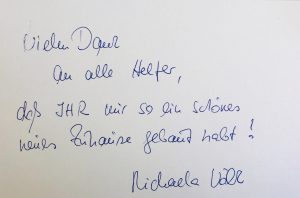 Vielen Dank
an alle Helfer,
daß IHR mir so ein schönes
neues Zuhause gebaut habt!
Michaela